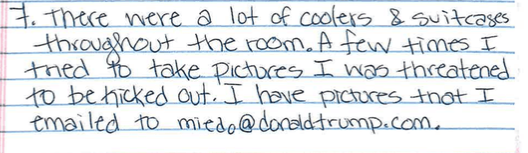 7. There were a lot of coolers & suitcases
throughout the room. A few times I
tried to take pictures I was threatened
to be kicked out. I have pictures that I
emailed to miedo@donaldtrump.com.